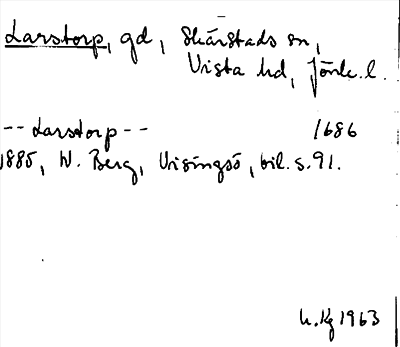 Larstorp, gd, Skärstads sn,
Vista hd, Jönk. l.
-- Larstorp -- 1686
1885, W. Berg, Visingsö, bil. s. 91.
1963